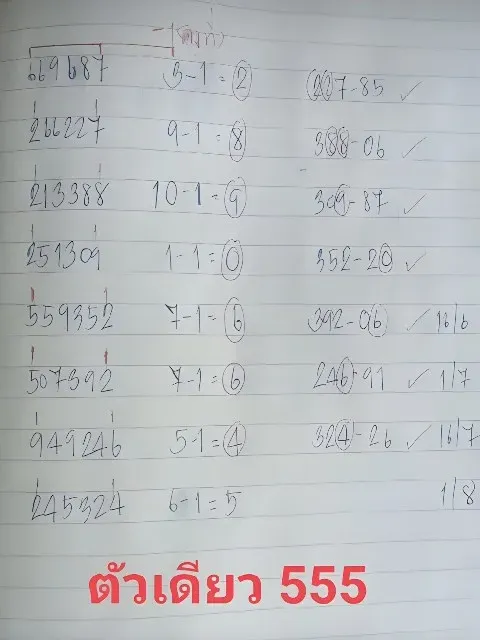 -1 (คงที่)
669687 3-1=2 227-85 ✓
266227 9-1=8 388-06 ✓
213388 10-1=9 399-87 ✓
251309 1-1=0 352-20 ✓
559352 7-1=6 392-06 ✓ 16/6
507392 7-1=6 246-91 ✓ 1/7
949246 5-1=4 324-26 ✓ 16/7
245324 6-1=5 1/8
ตัวเดียว 555